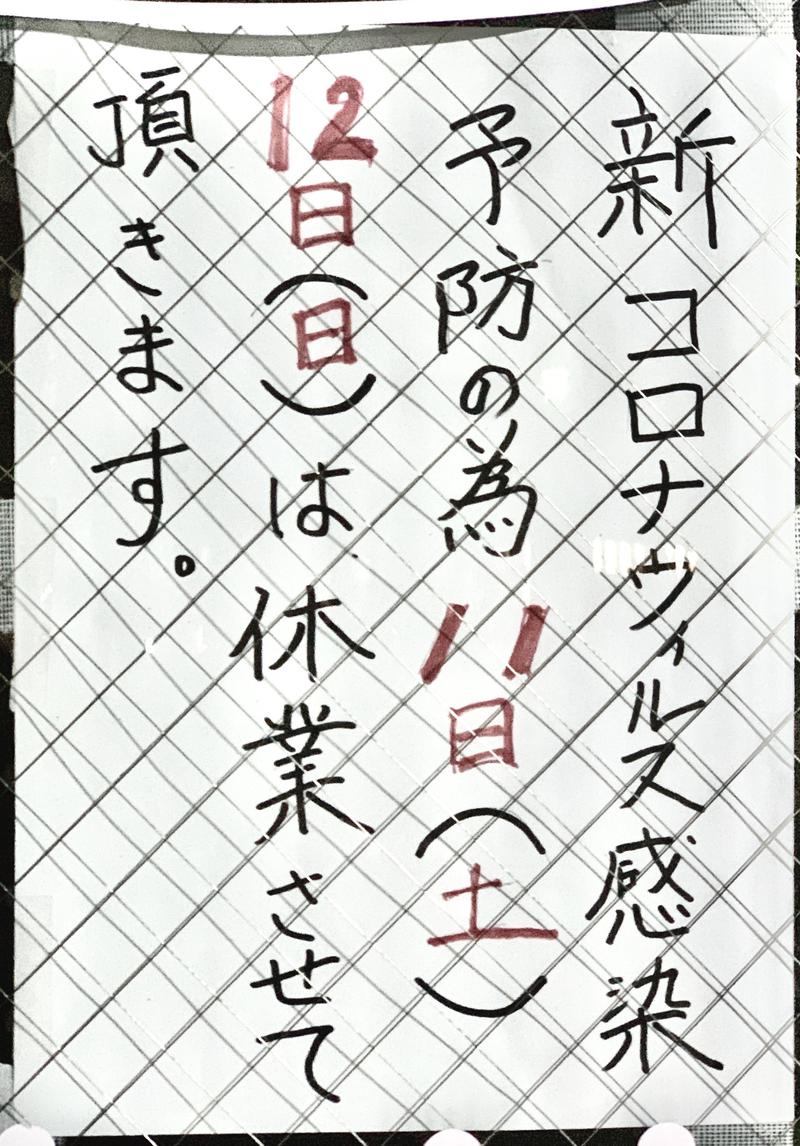 新コロナウィルス感染
予防の為11日(土)
12日(日)は休業させて
頂きます。